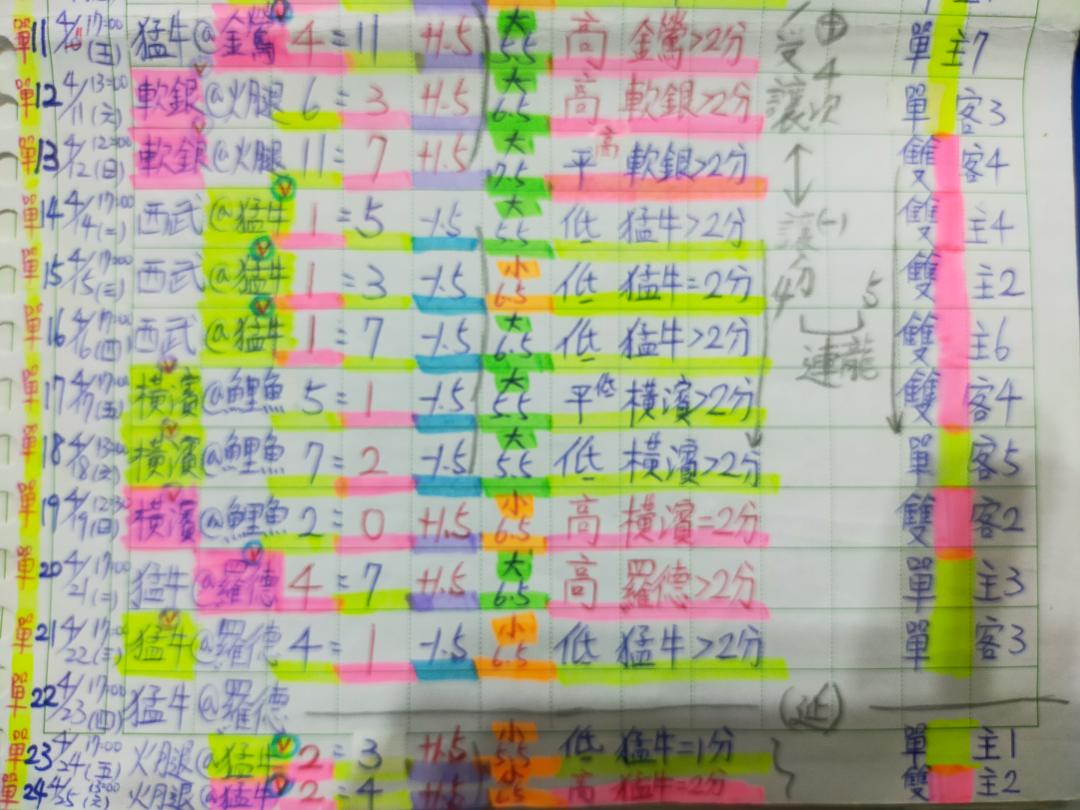 單 11 4/10 17:00 (五) 猛牛@金鶯 4=11 +1.5 大 5.5 高 金鶯>2分 單 主7
單 12 4/11 13:00 (六) 軟銀@火腿 6=3 +1.5 大 6.5 高 軟銀>2分 單 客3
單 13 4/12 12:00 (日) 軟銀@火腿 11=7 +1.5 大 7.5 平高 軟銀>2分 雙 客4
單 14 4/14 17:00 (二) 西武@猛牛 1=5 -1.5 大 5.5 低 猛牛>2分 雙 主4
單 15 4/15 17:00 (三) 西武@猛牛 1=3 -1.5 小 6.5 低 猛牛=2分 雙 主2
單 16 4/16 17:00 (四) 西武@猛牛 1=7 -1.5 大 6.5 低 猛牛>2分 雙 主6
單 17 4/17 17:00 (五) 橫濱@鯉魚 5=1 -1.5 大 5.5 平低 橫濱>2分 雙 客4
單 18 4/18 13:00 (六) 橫濱@鯉魚 7=2 -1.5 大 5.5 低 橫濱>2分 單 客5
單 19 4/19 12:30 (日) 橫濱@鯉魚 2=0 +1.5 小 6.5 高 橫濱=2分 雙 客2
單 20 4/21 17:00 (二) 猛牛@羅德 4=7 +1.5 大 6.5 高 羅德>2分 單 主3
單 21 4/22 17:00 (三) 猛牛@羅德 4=1 -1.5 小 6.5 低 猛牛>2分 單 客3
單 22 4/23 17:00 (四) 猛牛@羅德 (延)
單 23 4/24 17:00 (五) 火腿@猛牛 2=3 +1.5 小 5.5 低 猛牛=1分 單 主1
單 24 4/25 13:00 (六) 火腿@猛牛 2=4 +1.5 小 6.5 高 猛牛=2分 雙 主2
受讓
(+)
4次
讓(-)
4分
5
連龍